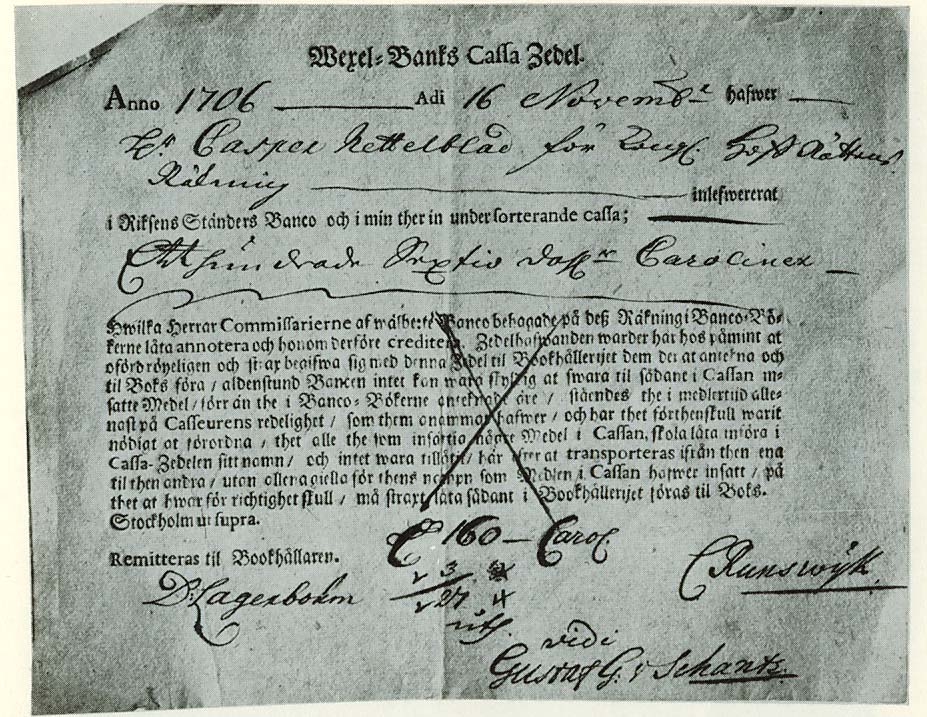 Wexel-Banks Cassa Zedel.
Anno 1706 Adi 16 Novembr hafwer
Hr Casper Nettelblad för Kongl. Hofrättens
Räkning inlefwererat
i Riksens Ständers Banco och i min ther in under sorterande cassa;
Ett hundrade Sextio dalr Caroliner
Hwilka Herrar Commissarierne af wälberte Banco behagade på deß Räkning i Banco-Bö-
kerne låta annotera och honom derföre creditera. Zedelhafwanden warder här hos påmint at
ofördröyeligen och strax begifwa sig med denna Zedel til Bookhållerijet dem der at antekna och
til Boks föra / aldenstund Bancen intet kan wara skyldig at swara til sådant i Cassan in-
satte Medel / förr än the i Banco-Bökerne antecknade äre / ståendes the i medlertid alle-
nast på Casseurens redelighet / som them anammat hafwer / och har thet förthenskull warit
nödigt at förordna / thet alle the som insättia någre Medel i Cassan, skola låta införa i
Cassa-Zedelen sitt namn / och intet wara tillåtit / här efter at transporteras ifrån then ena
til then andra / utan allenagiella för thens nampn som Medlen i Cassan hafwer insatt / på
thet at hwar för richtighet skull / må strax låta sådant i Bookhållerijet föras til Boks.
Stockholm ut supra.
160 - Carol
Remitteras til Bookhållaren.
3
D: Lagerbohm
27 4
C Runswÿk
vidi
Gustaf G. v Schantz